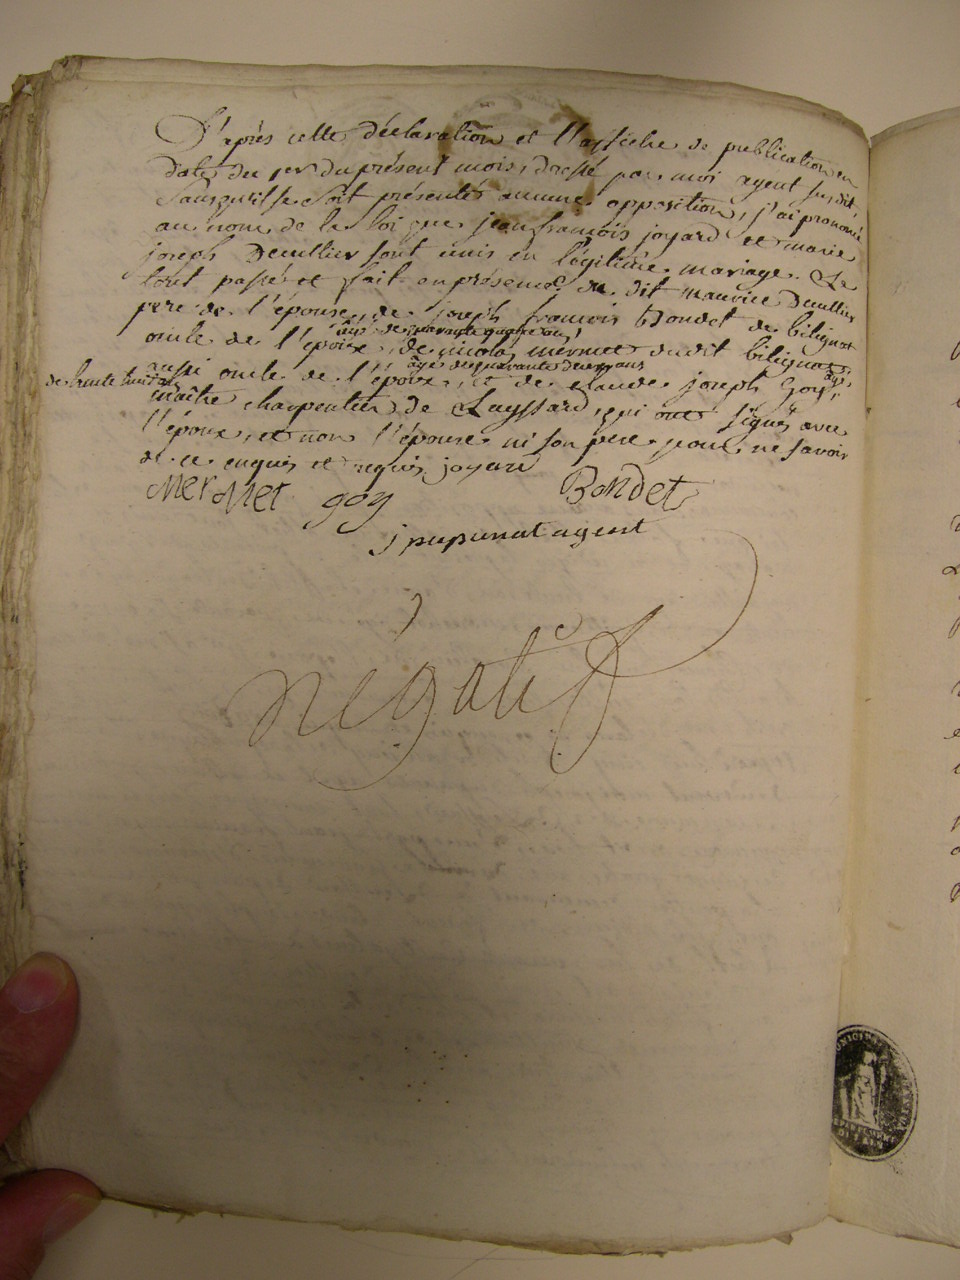 D'après cette déclaration et l'affiche de publication en
date du 1er du présent mois, dressé par moi agent susdit,
sans qu'il se soit présentés aucune opposition, j'ai prononcé
au nom de la loi que jean françois joyard et marie
joseph Decullier sont unis en légitime mariage. Le
tout passé et fait en présence du dit maurice Decullier
pere de l'épouse, de joseph françois Bondet de bilignat
âgé de quarante quatre ans,
oncle de l'époux, de nicolas mermet dudit bilignat,
âgé de quarante deux ans
aussi oncle de l'époux, et de claude joseph Goy, âgé
de trente huit ans
maître charpentier de Leyssard, qui ont signés avec
l'époux, et non l'épouse ni son pere pour ne savoir
de ce enquis et requis joyard
Mermet goy Bondet
j pupunat agent
négatif